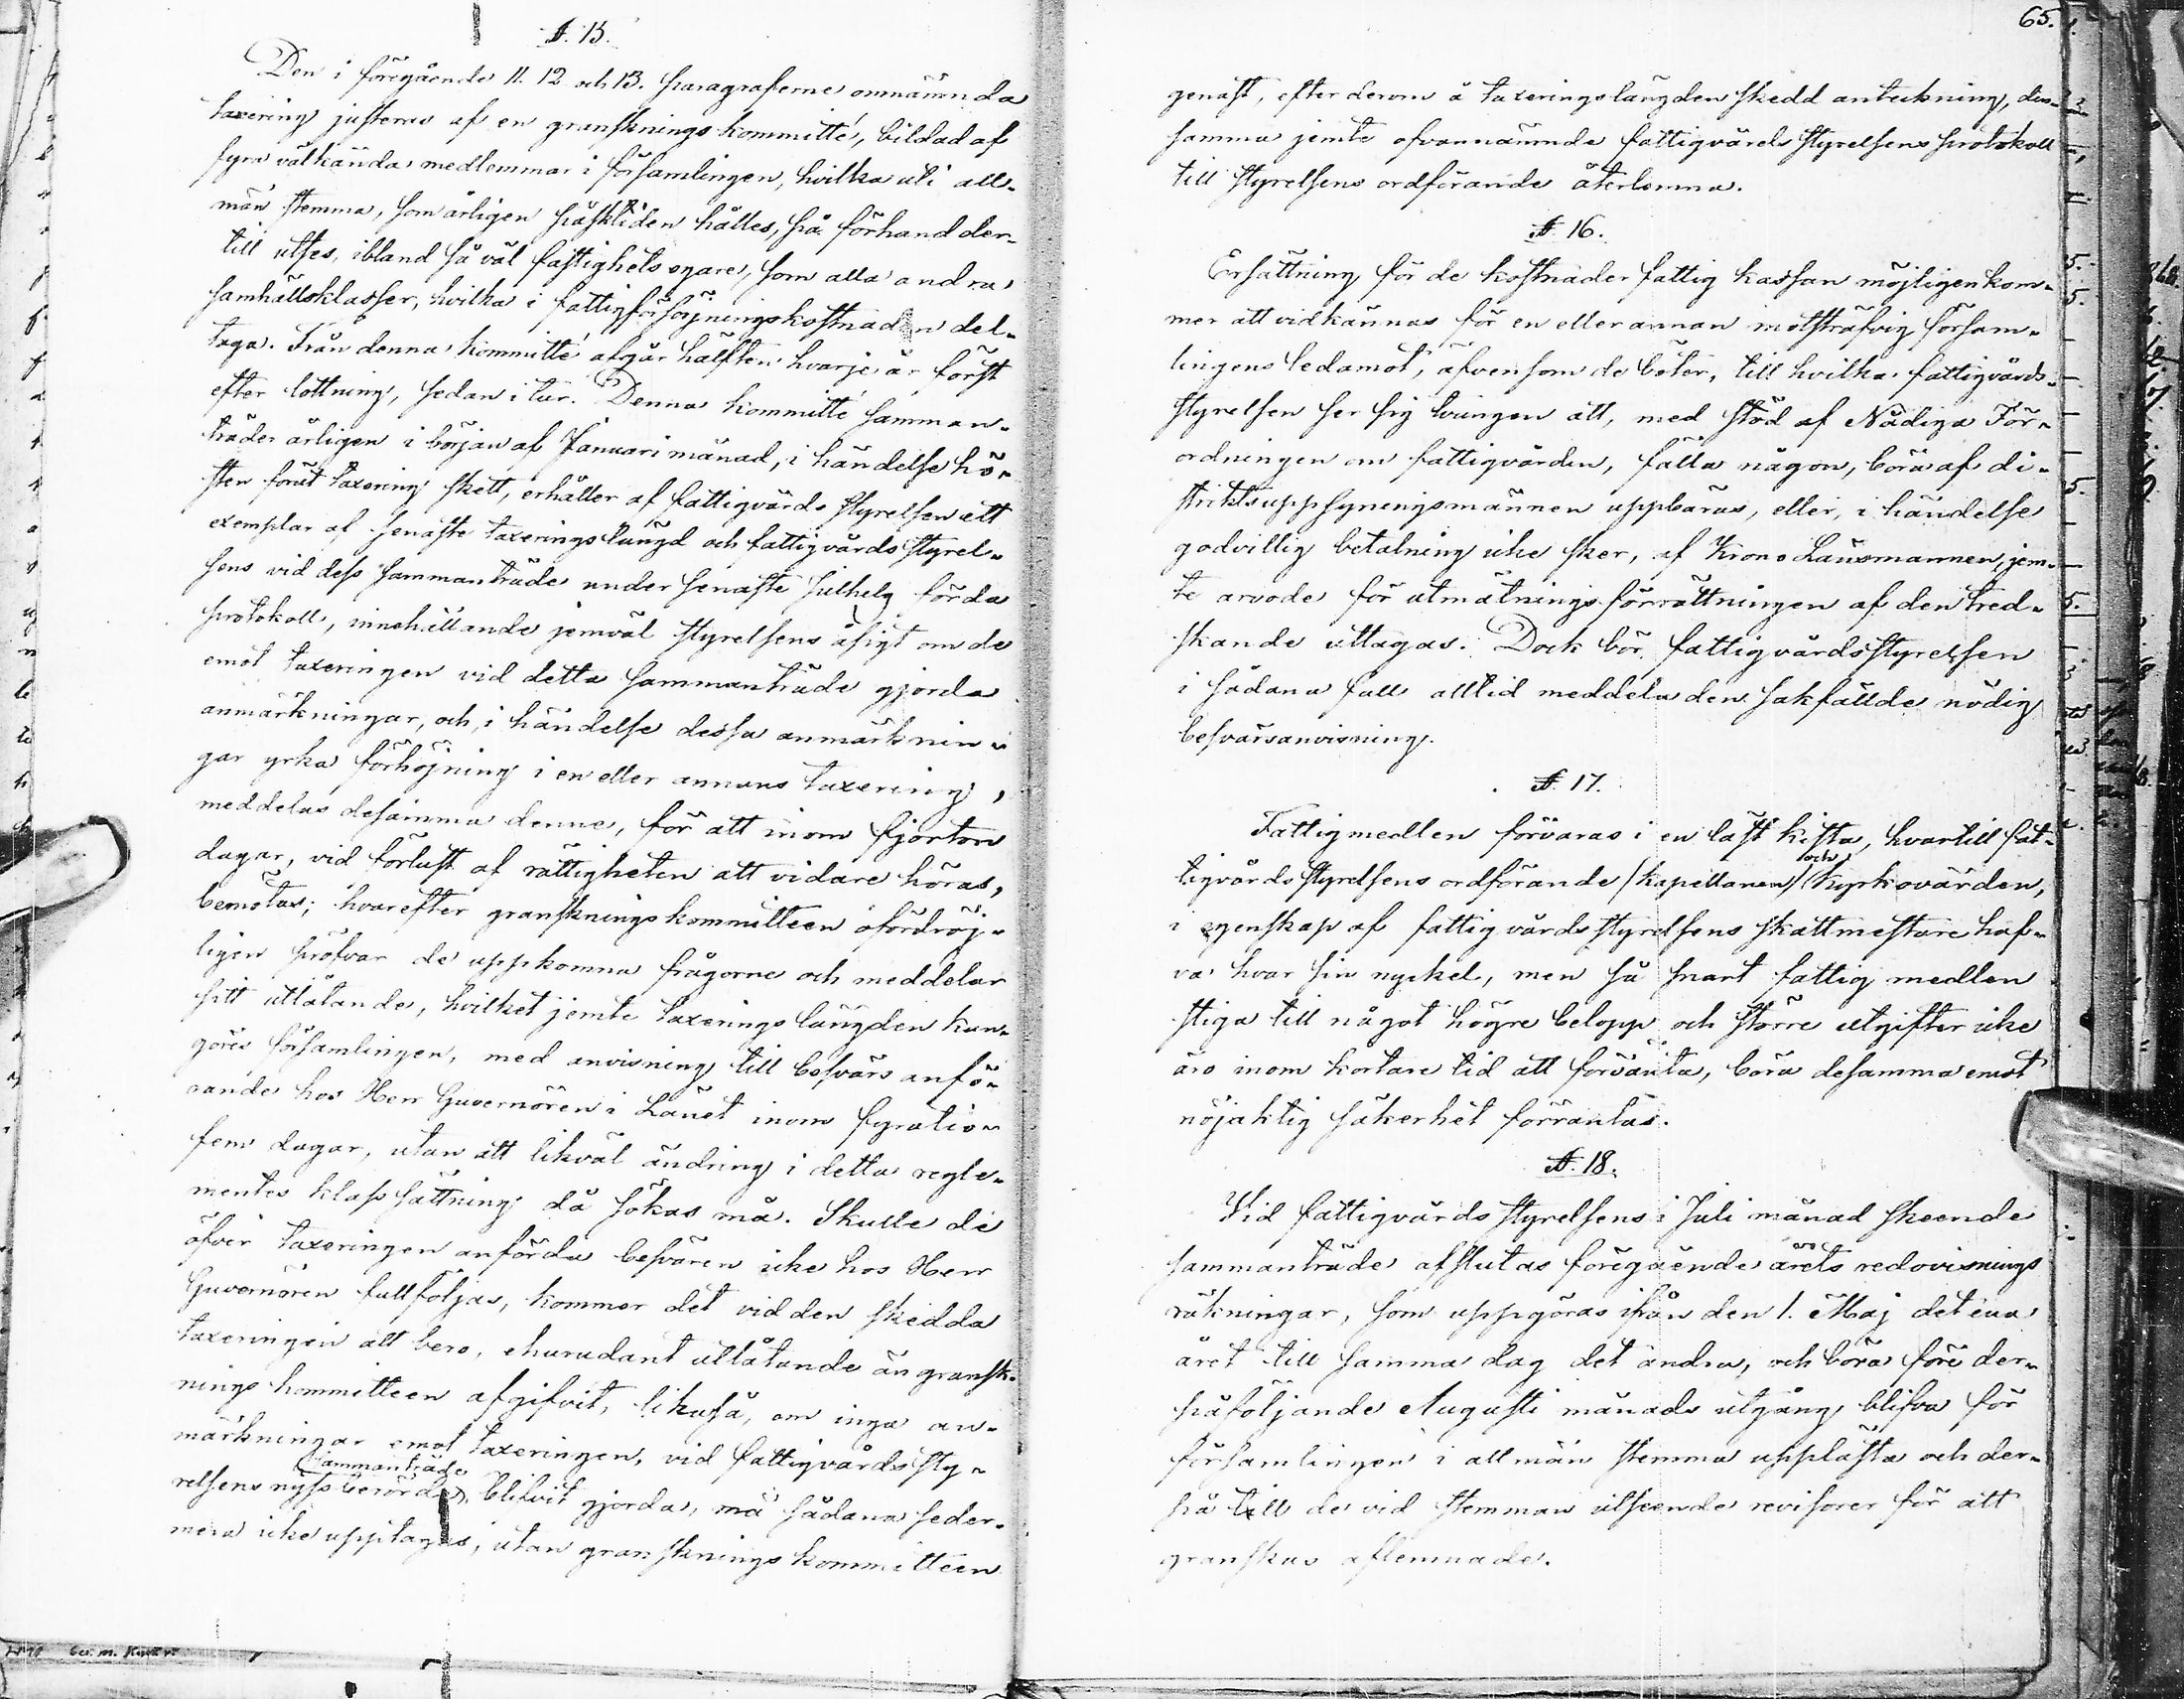 §. 15.
Den i föregående 11. 12 och 13. paragraferne omnämnda
taxering justeras af en gransknings kommitté, bildad af
fyra välkända medlemmar i församlingen, hvilka uti all-
män stemma, som årligen påsktiden hålles, på förhand der-
till utses, ibland så väl fastighets egare, som alla andra
samhällsklasser, hvilka i fattigförsörjningskostnaden del-
taga. Från denna kommitté afgår hälften hvarje år först
efter lottning, sedan i tur. Denna kommitté samman-
träder årligen i början af Januari månad, i händelse hö-
sten förut taxering skett, erhåller af fattigvårds styrelsen ett
exemplar af senaste taxeringslängd och fattigvårds styrel-
sens vid dess sammanträde under senaste julhelg förda
protokoll, innehållande jemväl styrelsens åsigt om de
emot taxeringen vid detta sammanträde gjorda
anmärkningar, och, i händelse dessa anmärknin-
gar yrka förhöjning i en eller annans taxering,
meddelas desamma denne, för att inom fjorton
dagar, vid förlust af rättigheten att vidare höras,
bemötas; hvarefter gransknings kommitteen ofördröj-
ligen pröfvar de uppkomna frågorne och meddelar
sitt utlåtande, hvilket jemte taxerings längden kun-
göres församlingen, med anvisning till besvärs anfö-
rande hos Herr Guvernören i Länet inom fyratio-
fem dagar, utan att likväl ändring i detta regle-
mentes klassättning då sökas må. Skulle de
öfver taxeringen anförda besvären icke hos Herr
Guvernören fullföljas, kommer det vid den skedda
taxeringen att bero, ehurudant utlåtande än gransk-
nings kommitteen afgifvit, likaså, om inga an-
märkningar emot taxeringen, vid fattigvårds sty-
relsens nyssberörde sammanträde blifvit gjorda, må sådana seder-
mera icke upptagas, utan gransknings kommitteen
65.
genast, efter derom å taxeringslängden skedd anteckning, den-
samma jemte ofvannämnde fattigvårds styrelsens protokoll
till styrelsens ordförande återlemna.
§. 16.
Ersättning för de kostnader fattig kassan möjligen kom-
mer att vidkännas för en eller annan motsträfvig försam-
lingens ledamot, äfvensom de böter, till hvilka fattigvårds-
styrelsen ser sig tvungen att, med stöd af Nådiga För-
ordningen om fattigvården, fälla någon, böra af di-
striktsuppsyningsmännen uppbäras, eller, i händelse
godvillig betalning icke sker, af Krono Länsmannen, jem-
te arvode för utmätnings förrättningen af den tred-
skande uttagas. Dock bör fattigvårdsstyrelsen
i sådana fall alltid meddela den sakfällde nödig
besvärsanvisning.
§. 17.
Fattigmedlen förvaras i en låst kista, hvartill fat-
tigvårds styrelsens ordförande (kapellanen) och kyrkovärden,
i egenskap af fattigvårds styrelsens skattmästare haf-
va hvar sin nyckel, men så snart fattig medlen
stiga till något högre belopp och större utgifter icke
äro inom kortare tid att förvänta, böra desamma emot
nöjaktig säkerhet förräntas.
§. 18.
Vid fattigvårds styrelsens i Juli månad skeende
sammanträde afslutas föregående årets redovisnings
räkningar, som uppgöras ifrån den 1. Maj det ena
året till samma dag det andra, och böra före der-
påföljande Augusti månads utgång blifva för
församlingen i allmän stemma upplästa och der-
på till de vid stemman utseende revisorer för att
granskas aflemnade.